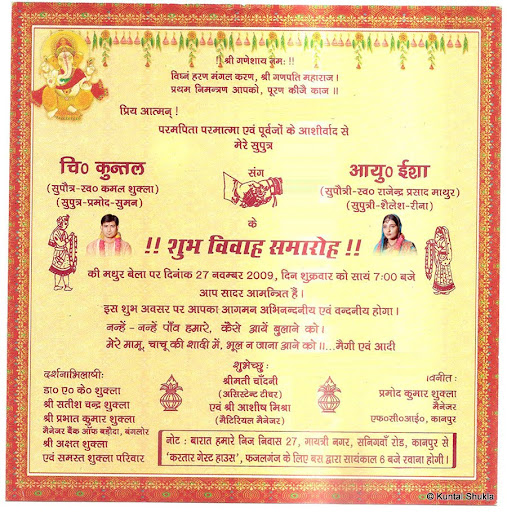 !! श्री गणेशाय नमः !!
विघ्नं हरण मंगल करण, श्री गणपति महाराज।
प्रथम निमन्त्रण आपको, पूरण कीजै काज ॥
प्रिय आत्मन् !
परमपिता परमात्मा एवं पूर्वजों के आशीर्वाद से
मेरे सुपुत्र
चि० कुन्तल
(सुपौत्र-स्व० कमल शुक्ला)
(सुपुत्र-प्रमोद-सुमन)
संग
आयु० ईशा
(सुपौत्री-स्व० राजेन्द्र प्रसाद माथुर)
(सुपुत्री-शैलेश-रीना)
के
!! शुभ विवाह समारोह !!
की मधुर बेला पर दिनांक 27 नवम्बर 2009, दिन शुक्रवार को सायं 7:00 बजे
आप सादर आमन्त्रित हैं।
इस शुभ अवसर पर आपका आगमन अभिनन्दनीय एवं वन्दनीय होगा।
नन्हें - नन्हें पाँव हमारे, कैसे आयें बुलाने को।
मेरे मामू, चाचू की शादी में, भूल न जाना आने को॥...मैगी एवं आदी
दर्शनाभिलाषी:
डा० ए० के० शुक्ला
श्री सतीश चन्द्र शुक्ला
श्री प्रभात कुमार शुक्ला
मैनेजर बैंक ऑफ बड़ौदा, बंगलोर
श्री अक्षत शुक्ला
एवं समस्त शुक्ला परिवार
शुभेच्छु:
श्रीमती चाँदनी
(असिस्टेन्ट टीचर)
एवं श्री आशीष मिश्रा
(मैटिरियल मैनेजर)
विनीत:
प्रमोद कुमार शुक्ला
मैनेजर
एफ०सी०आई०, कानपुर
नोट : बारात हमारे निज निवास 27, गायत्री नगर, सनिगवाँ रोड, कानपुर से
'करतार गेस्ट हाउस', फजलगंज के लिए बस द्वारा सायंकाल 6 बजे रवाना होगी।
© Kuntal Shukla